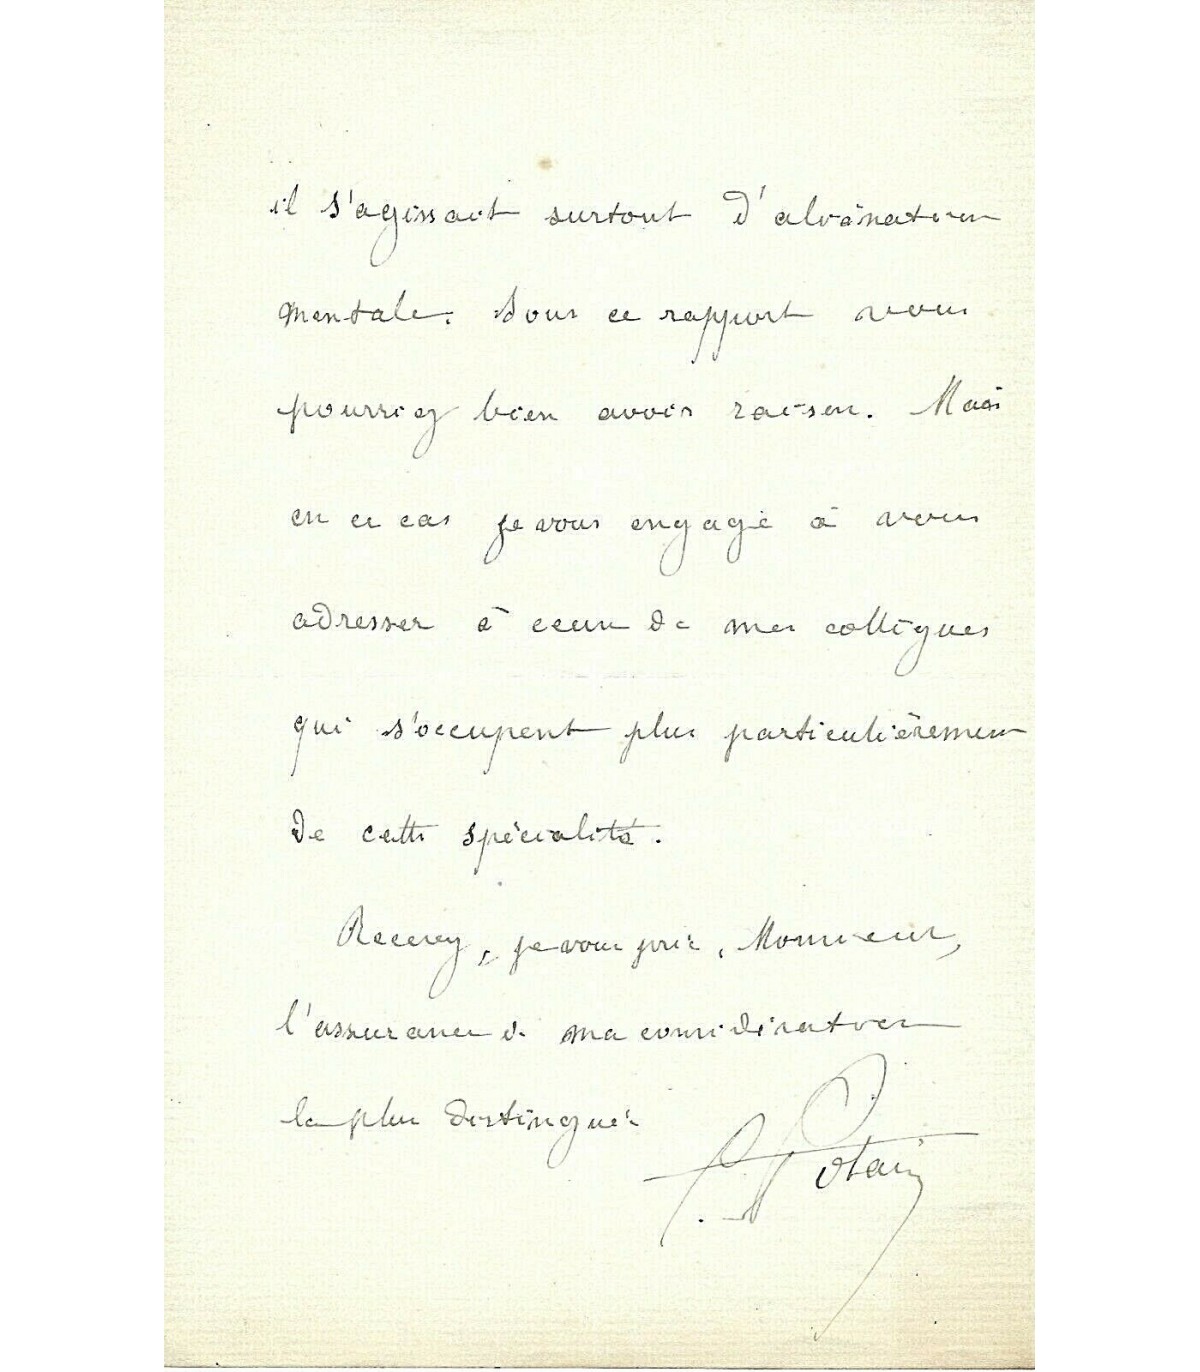 il s'agissait surtout d'aliénation
mentale. Sous ce rapport vous
pourriez bien avoir raison. Mais
en ce cas je vous engage à vous
adresser à ceux de mes collègues
qui s'occupent plus particulièrement
de cette spécialité.
Recevez, je vous prie, Monsieur,
l'assurance de ma considération
la plus distinguée
P. Potain